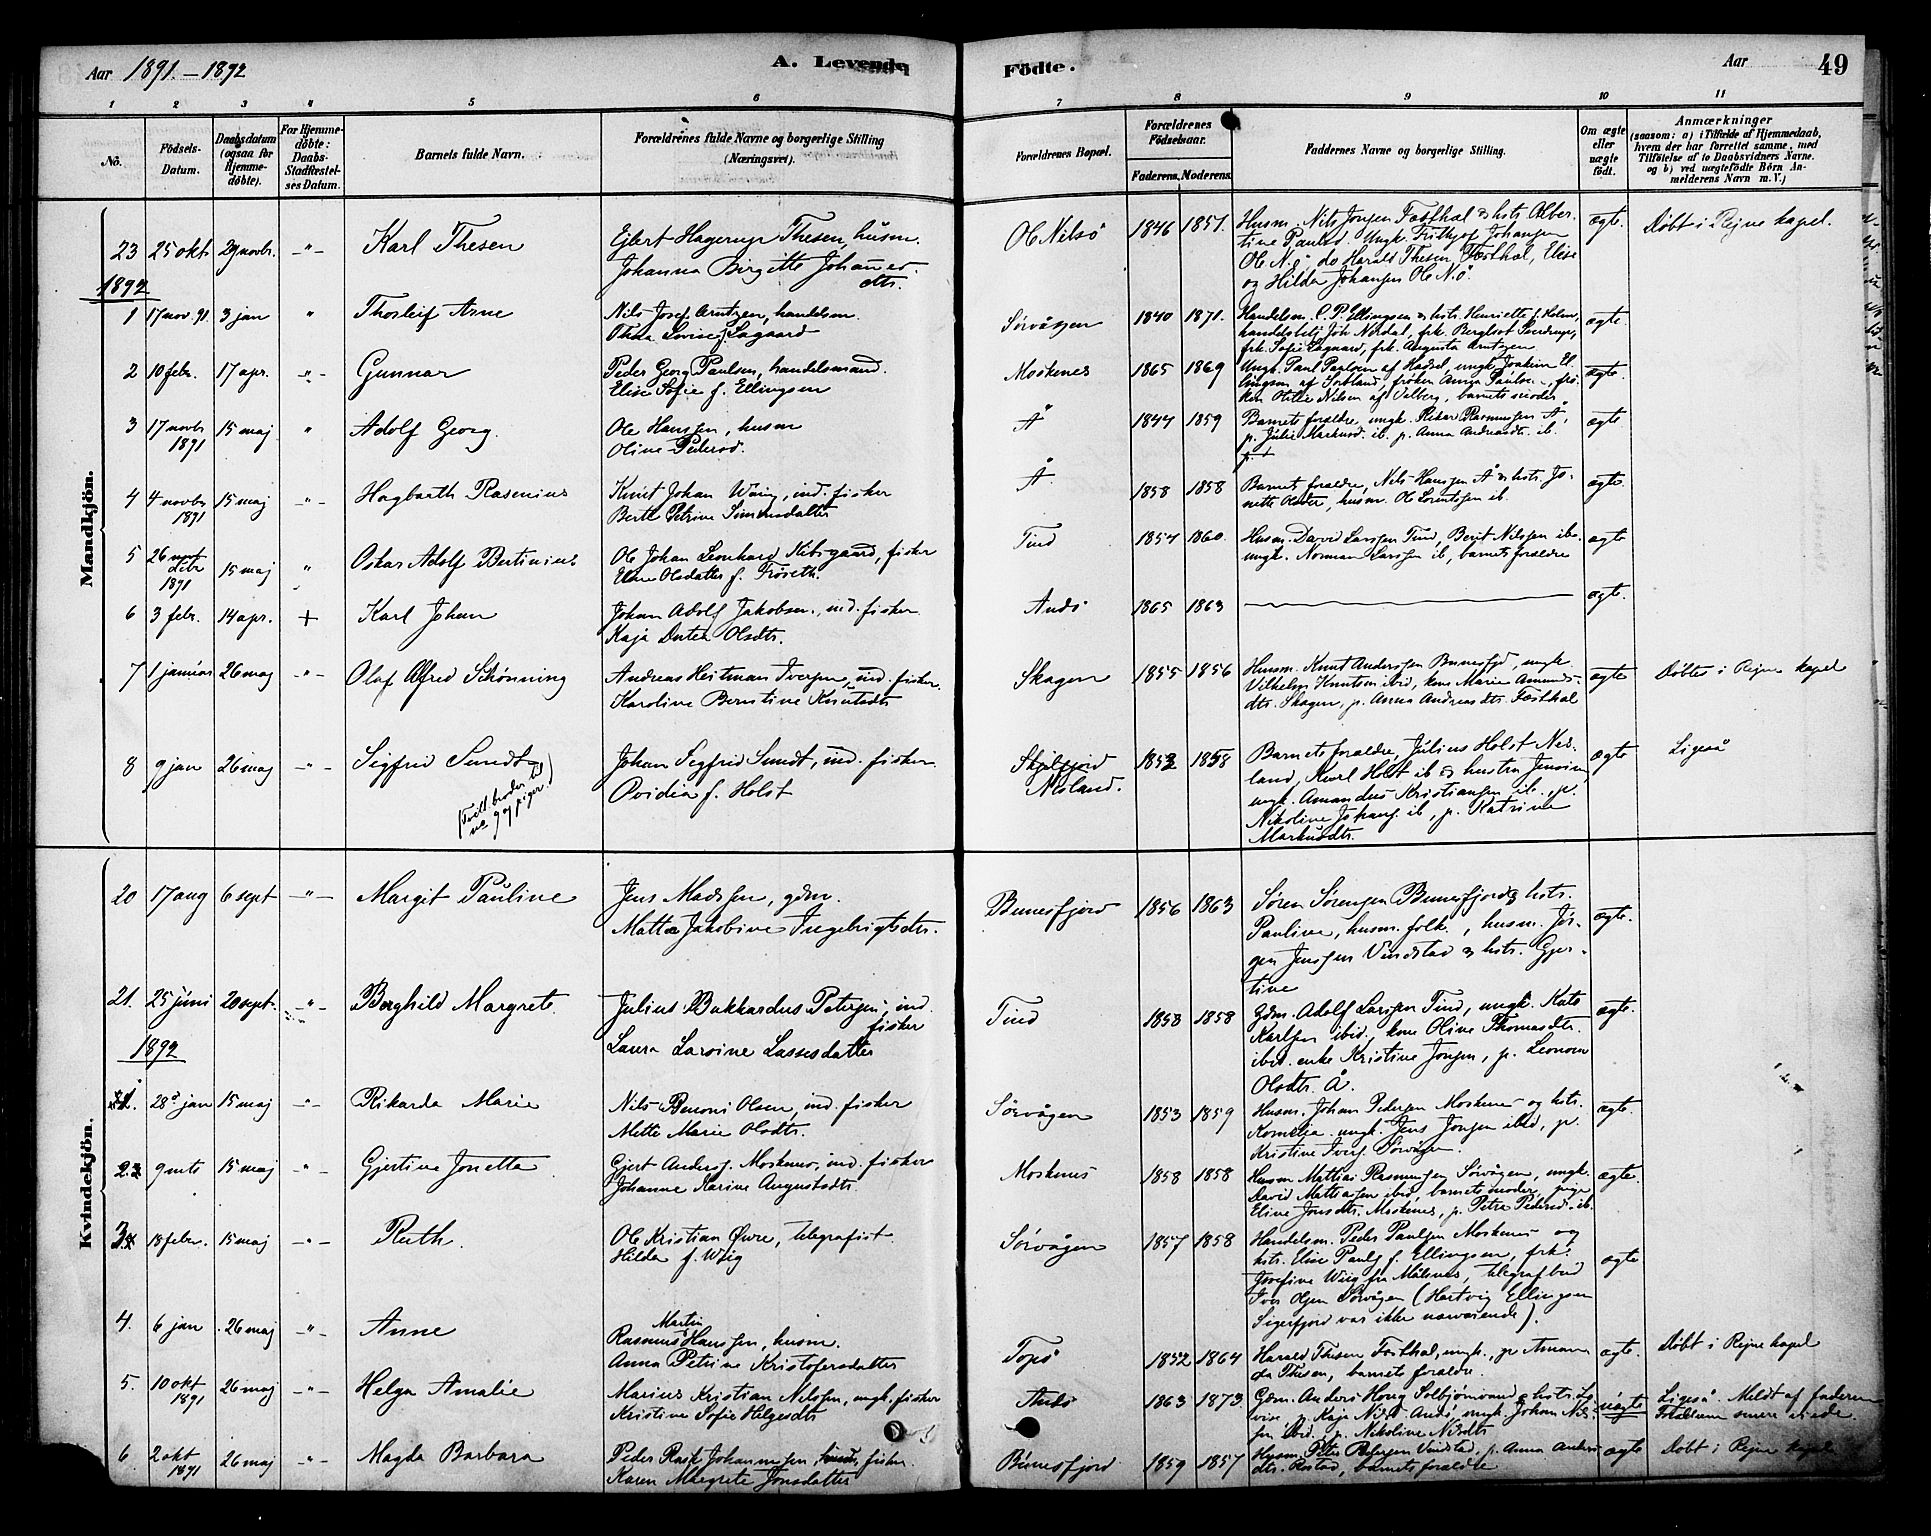 Aar 1891–1892
A. Levende
Födte.
Aar
49
1 2 3 4 5 6 7 8 9 10 11
Nö.
Födsels-
Datum.
Daabsdatum
(ogsaa for
Hjemme-
döbte).
For Hjemme-
döbte:
Daabs-
Stadfæstel-
ses Datum.
Barnets fulde Navn.
Forældrenes fulde Navne og borgerlige Stilling
(Næringsvei).
Forældrenes Bopæl.
Forældrenes
Födselsaar.
Faderens. Moderens.
Faddernes Navne og borgerlige Stilling.
Om ægte
eller
uægte
födt.
Anmærkninger
(saasom: a) i Tilfælde af Hjemmedaab,
hvem der har forrettet samme, med
Tilföielse af to Daabsvidners Navne.
og b) ved uægtefödte Börn An-
melderens Navn m. V.)
Mandkjön.
23 25 okt 29 novbr. -"- Karl Thesen
Ejlert Hagerup Thesen, husm.
Johanna Birgitte Johannesdtr.
Ole Nilsö 1846 1851.
Husm. Nils Jongen Festhal & hstr. Alber-
tine Paulsd. Ungk. Frithjof Johansen
Ole N.ö do Harald Thesen, Festhal, Elise
og Hilda Johansen Ole N.ö.
ægte. Døbt i Rejne kapel.
1892
1 17 nov. 91. 3 jan " Thorleif Arne
Nils Josef Arntzen, handelsm.
Lovise f. Lagaard
Sørvågen 1840 1871.
Handelsm. C. P. Ellingsen & hstr. Henriette f. Holm,
handelsbetj Joh Nordal, frk. Bergljot Sverdrup,
frk. Sofie Lagaard, frk. Augusta Arntzen
ægte.
2 10 febr. 17 apr. -"- Gunnar
Peder Georg Paulsen, handelsmand.
Elise Sofie f. Ellingsen
Moskenes 1865 1869
Ungk. Paul Paulsen af Hadsel, ungk. Joakim El-
lingsen af Sortland, frøken Anna Paulsen, frø-
ken Nilsen af Valberg, barnets moder
ægte.
3 17 novbr 1891 15 maj " Adolf Georg.
Ole Hansen, husm
Oline Pedersd.
Å 1844 1859
Barnets forældre, ungk. Rikar Rasmussen Å,
p. Julie Markusd. ib. p. Anna Andreasdtr. ib.
ægte
4 4 novbr 1891 15 maj -"- Hagbarth Rasmius
Knut Johan Wiig, ind. fisker
Berit Petrine Simonsdatter
Å. 1858 1858
Barnets forældre, Nils Hansen Å & hstr. Jo-
nette Olsdtr, husm. Ole Lorentsen ib.
ægte.
5 26 novbr 1891 15 maj " Oskar Adolf Bertinius
Ole Johan Leonhard Kibsgaard, fisker
Olsdatter f. Frøseth.
Tind 1854 1860.
Husm. David Larssen Tind, Berit Nilssen ib.
ungk. Norman Larssen ib, barnets forældre
ægte
6 3 febr. 14 apr. + Karl Johan
Johan Adolf Jakobsen, ind. fisker
Kaja Dortea Olsdtr.
Andö 1865 1863
ægte.
7 1 januar 26 maj -"- Olaf Alfred Schönning
Andreas Heitman Iversen, ind. fisker.
Karoline Berntine Knutsdtr
Skagen 1855 1856
Husm. Knut Anderssen Bunesfjd, ungk.
Vilhelm Knutsen ibid, kone Marie Amunds-
dtr. Skagen, p. Anna Andreasdtr. Festhal
ægte Døbt i Rejne kapel
8 9 jan 26 maj -"- Sigfrid Sundt
(Tvillbroder til
no 9 af piger.)
Johan Segfrid Sundt, ind. fisker.
Ovidia f. Holst
Skjelfjord
Nesland. 1852 1858
Barnets forældre, Julius Holst Nes-
land, Karl Holst ib & hustru Jensine,
ungk. Amandus Kristiansen ib., p.
Nikoline Johans. ib, p. Katrine
Markusdtr.
ægte Ligeså
Kvindekjön.
20 17 aug 6 sept -"- Margit Pauline
Jens Madssen, gdm.
Matta Jakobine Ingebrigtsdtr.
Bunesfjord 1856 1863
Søren Sørensen Bunesfjord & hstr.
Pauline, husm. folk., husm. Jör-
gen Jenssen Vindstad & hstr. Gjer-
tine
ægte.
21. 25 juni 20 sept. -"- Borghild Margrete.
Julius Bukkardus Petersen, ind.
fisker
Laura Lavine Lassesdatter
Tind 1858 1858
Gdm. Adolf Larssen Tind, ungk. Kato
Karlsen ibid, kone Oline Thomasdtr.
ibid. enke Kristine Jonsen, p. Leonore
Olsdtr. Å.
ægte.
1892
1. 28 jan 15 maj -"- Rikarda Marie
Nils Benoni Olsen, ind. fisker
Mette Marie Olsdtr.
Sørvågen 1853 1859
Husm. Johan Pedersen Moskenes og hstr.
Kornelia. ungk. Jens Jonsen ibid, p.
Kristine Ivers. Sørvågen.
ægte.
2 9 mts 15 maj -"- Gjertine Jonetta
Gjert Anders. Moskenes, ind. fisker
Johanne Karine Augustsdtr.
Moskenes 1858 1858
Husm Mathias Rasmussen Sørvågen, ungk.
David Mathiasen ibid, barnets moder, pige
Eline Jonsdtr. Moskenes, p. Petra Pedersd. ib.
ægte.
3 18 febr. 15 maj -"- Ruth.
Ole Kristian Øvre, telegrafist.
Hilda f. Wiig
Sørvågen 1857 1858
Handelsm. Peder Paulsen Moskenes og
hstr. Elise Pauls f. Ellingsen, frk.
Josefine Wiig fra Målsnes, telegrafbud
Iver Olsen Sørvågen (Hartvig Ellingsen
Sigerfjord var ikke nærværende).
ægte
4. 6 jan 26 maj -"- Anne
Rasmus Martin Hanssen, husm.
Anna Petrine Kristofersdatter
Topö 1852 1864
Harald Thesen Festhal, ungk., p. Aman-
da Thesen, barnets forældre.
ægte. Døbt i Rejne kapel
5. 10 okt 1891 26 maj -"- Helga Amalie
Marius Kristian Nilssen, ungk, fisker
Kristine Sofie Helgesdtr
Andö 1863 1873.
Gdm. Anders Houg Solbjørnvand & hstr. Lo-
vise, p. Kaja Nilsd. Andö, ungk. Johan Nils-
sen ibid., p. Nikoline Nilsdtr
uægte Ligeså. Meldt af faderen
Forældrene senere viede
6. 2 okt 1891 26 maj -"- Magda Barbara
Peder Rask Johannessen, fisker.
Karen Margrete Jonsdatter
Bunesfjord 1859 1857
Husm. Peter Pedersen Vindstad, p. Anna Anders-
dtr. Rostad, barnets forældre
ægte Døbt i Rejne kapel